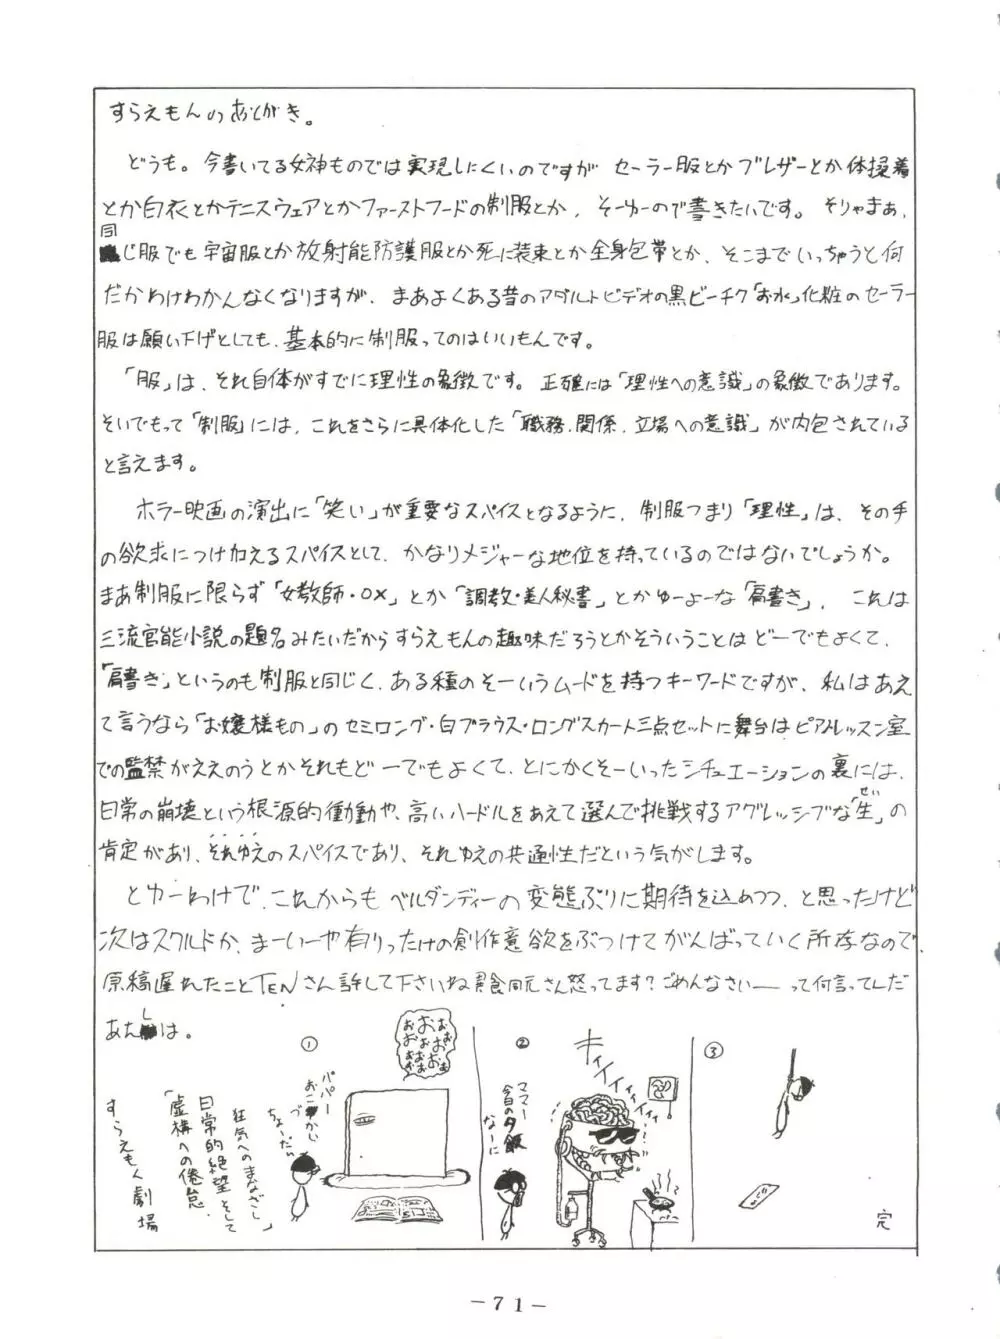 すらえもんのあとがき。
どうも。今書いてる女神ものでは実現しにくいのですが セーラー服とかブレザーとか体操着
とか白衣とかテニスウェアとかファーストフードの制服とか、そーゆーので書きたいです。そりゃまぁ、
同じ服でも宇宙服とか放射能防護服とか死に装束とか全身包帯とか、そこまでいっちゃうと何
だかわけわかんなくなりますが、まあよくある昔のアダルトビデオの黒ビーチク「お水」化粧のセーラー
服は願い下げとしても、基本的に制服ってのはいいもんです。
「服」は、それ自体がすでに理性の象徴です。正確には「理性への意識」の象徴であります。
そいでもって「制服」には、これをさらに具体化した「職務、関係、立場への意識」が内包されている
と言えます。
ホラー映画の演出に「笑い」が重要なスパイスとなるように、制服つまり「理性」は、その手
の欲求につけ加えるスパイスとして、かなりメジャーな地位を持っているのではないでしょうか。
まあ制服に限らず「女教師・○×」とか「調教・美人秘書」とかゆーよーな「肩書き」、これは
三流官能小説の題名みたいだからすらえもんの趣味だろうとかそういうことはどーでもよくて、
「肩書き」というのも制服と同じく、ある種のそーいうムードを持つキーワードですが、私はあえ
て言うなら「お嬢様もの」のセミロング・白ブラウス・ロングスカート三点セットに舞台はピアノレッスン室
での監禁がええのうとかそれもどーでもよくて、とにかくそーいったシチュエーションの裏には、
日常の崩壊という根源的衝動や、高いハードルをあえて選んで挑戦するアグレッシブな「生」の
せい
肯定があり、それゆえのスパイスであり、それゆえの共通性だという気がします。
とゆーわけで、これからもベルダンディーの変態ぶりに期待を込めつつ、と思ったけど
次はスクルドか、まーいーや有りったけの創作意欲をぶつけてがんばっていく所存なので、
原稿遅れたことTENさん許して下さいね 同元さん怒ってます?ごめんなさいーって何言ってんだ
あたしは。
①
おおおおおおおおおおおおおお
パパー
おこづかい
ちょーだい
②
キィイイイィィィィ
ママー
今日の夕飯
なーに
③
完
狂気へのまなざし
日常的絶望そして
「虚構への倦怠」
すらえもん劇場
-71-